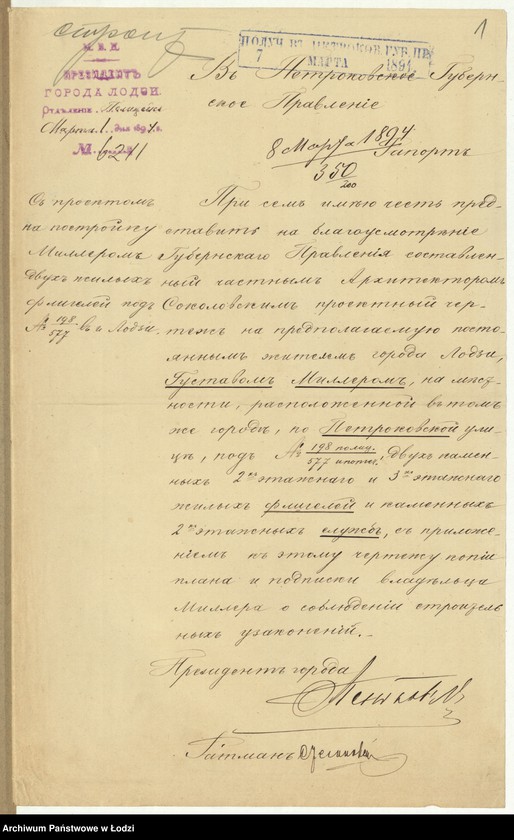 строит
1
М. В. Д.
ПРЕЗИДЕНТЪ
ГОРОДА ЛОДЗИ.
Отдѣленіе Полицейск.
Марта 1 дня 1894 г.
№ 6241
ПОЛУЧ. ВЪ ПЕТРОКОВ. ГУБ. ПР.
7 МАРТА 1894
Въ Петроковское Губерн-
ское Правленіе
8 Марта 1894
Рапортъ
350
200
Съ проектомъ
на постройку
Миллеромъ
двухъ жилыхъ
флигелей подъ
№ 198/577 въ г. Лодзи.
При семъ имѣю честь пред-
ставить на благоусмотрѣніе
Губернскаго Правленія составлен-
ный частнымъ Архитекторомъ
Соколовскимъ проектный чер-
тежъ на предполагаемую посто-
яннымъ жителемъ города Лодзи,
Густавомъ Миллеромъ, на мѣст-
ности, расположенной въ томъ
же городѣ, по Петроковской ули-
цѣ, подъ № 198 полиц./577 ипотеч., двухъ камен-
ныхъ 2хъ этажнаго и 3хъ этажнаго
жилыхъ флигелей и каменныхъ
2хъ этажныхъ службъ, съ приложе-
ніемъ къ этому чертежу копіи
плана и подписки владѣльца
Миллера о соблюденіи строитель
ныхъ узаконеній.
Президентъ города
Пеньковск
Ратманъ
Archiwum Państwowe w Łodzi